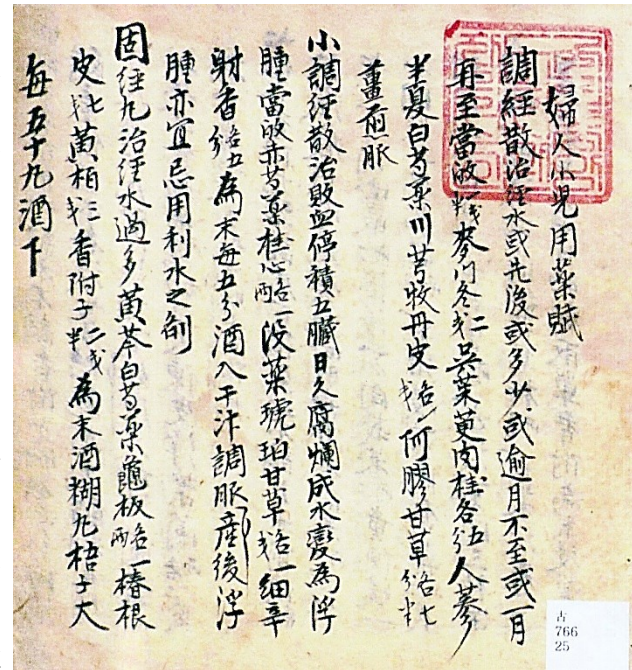 婦人小児用薬賦
調經散治經水或先後或多少或逾月不至或一月
再至當皈戈半麥门冬二戈吳茱萸肉桂各五分人參
半夏白芍藥川芎牧丹皮各一戈阿膠甘草各七分半
薑煎服
小調經散治敗血停積五臟日久腐爛成水變為浮
腫當皈赤芍藥桂心各一両没藥琥珀甘草各一戈細辛
射香各五分為末每五分酒入干汁調服產後浮
腫亦宜忌用利水之剤
固經丸治經水過多黃芩白芍藥龜板各一両椿根
皮七戈黃柏三戈香附子二戈半為末酒糊丸梧子大
每五十丸酒下
古
766
25